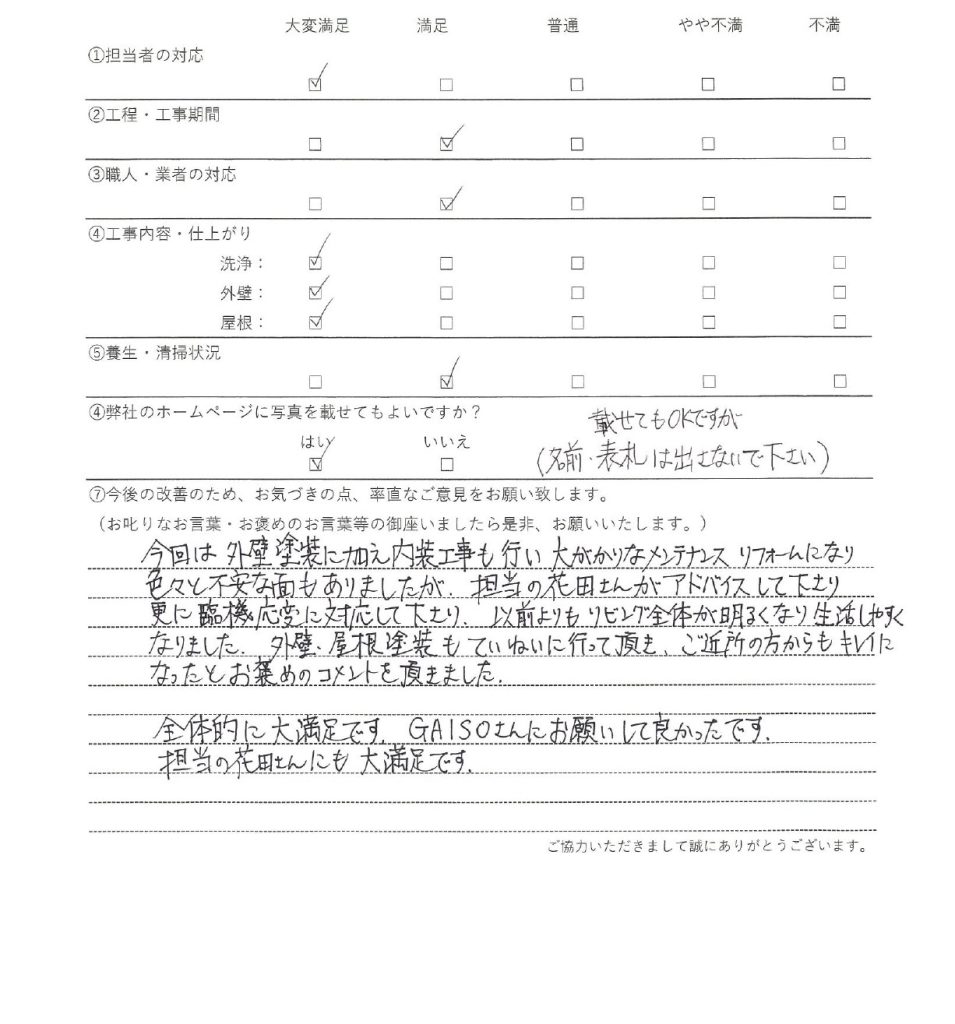 大変満足 満足 普通 やや不満 不満
①担当者の対応
☑ □ □ □ □
②工程・工事期間
□ ☑ □ □ □
③職人・業者の対応
□ ☑ □ □ □
④工事内容・仕上がり
洗浄： ☑ □ □ □ □
外壁： ☑ □ □ □ □
屋根： ☑ □ □ □ □
⑤養生・清掃状況
□ ☑ □ □ □
④弊社のホームページに写真を載せてもよいですか？
はい いいえ
☑ □
載せてもOKですが
(名前・表札は出さないで下さい)
⑦今後の改善のため、お気づきの点、率直なご意見をお願い致します。
（お叱りなお言葉・お褒めのお言葉等の御座いましたら是非、お願いいたします。）
今回は外壁塗装に加え内装工事も行い大がかりなメンテナンスリフォームになり
色々と不安な面もありましたが、担当の花田さんがアドバイスして下さり
更に臨機応変に対応して下さり、以前よりもリビング全体が明るくなり生活しやすく
なりました。外壁・屋根塗装もていねいに行って頂き、ご近所の方からもキレイに
なったとお褒めのコメントを頂きました。
全体的に大満足です。GAISOさんにお願いして良かったです。
担当の花田さんにも大満足です。
ご協力いただきまして誠にありがとうございます。